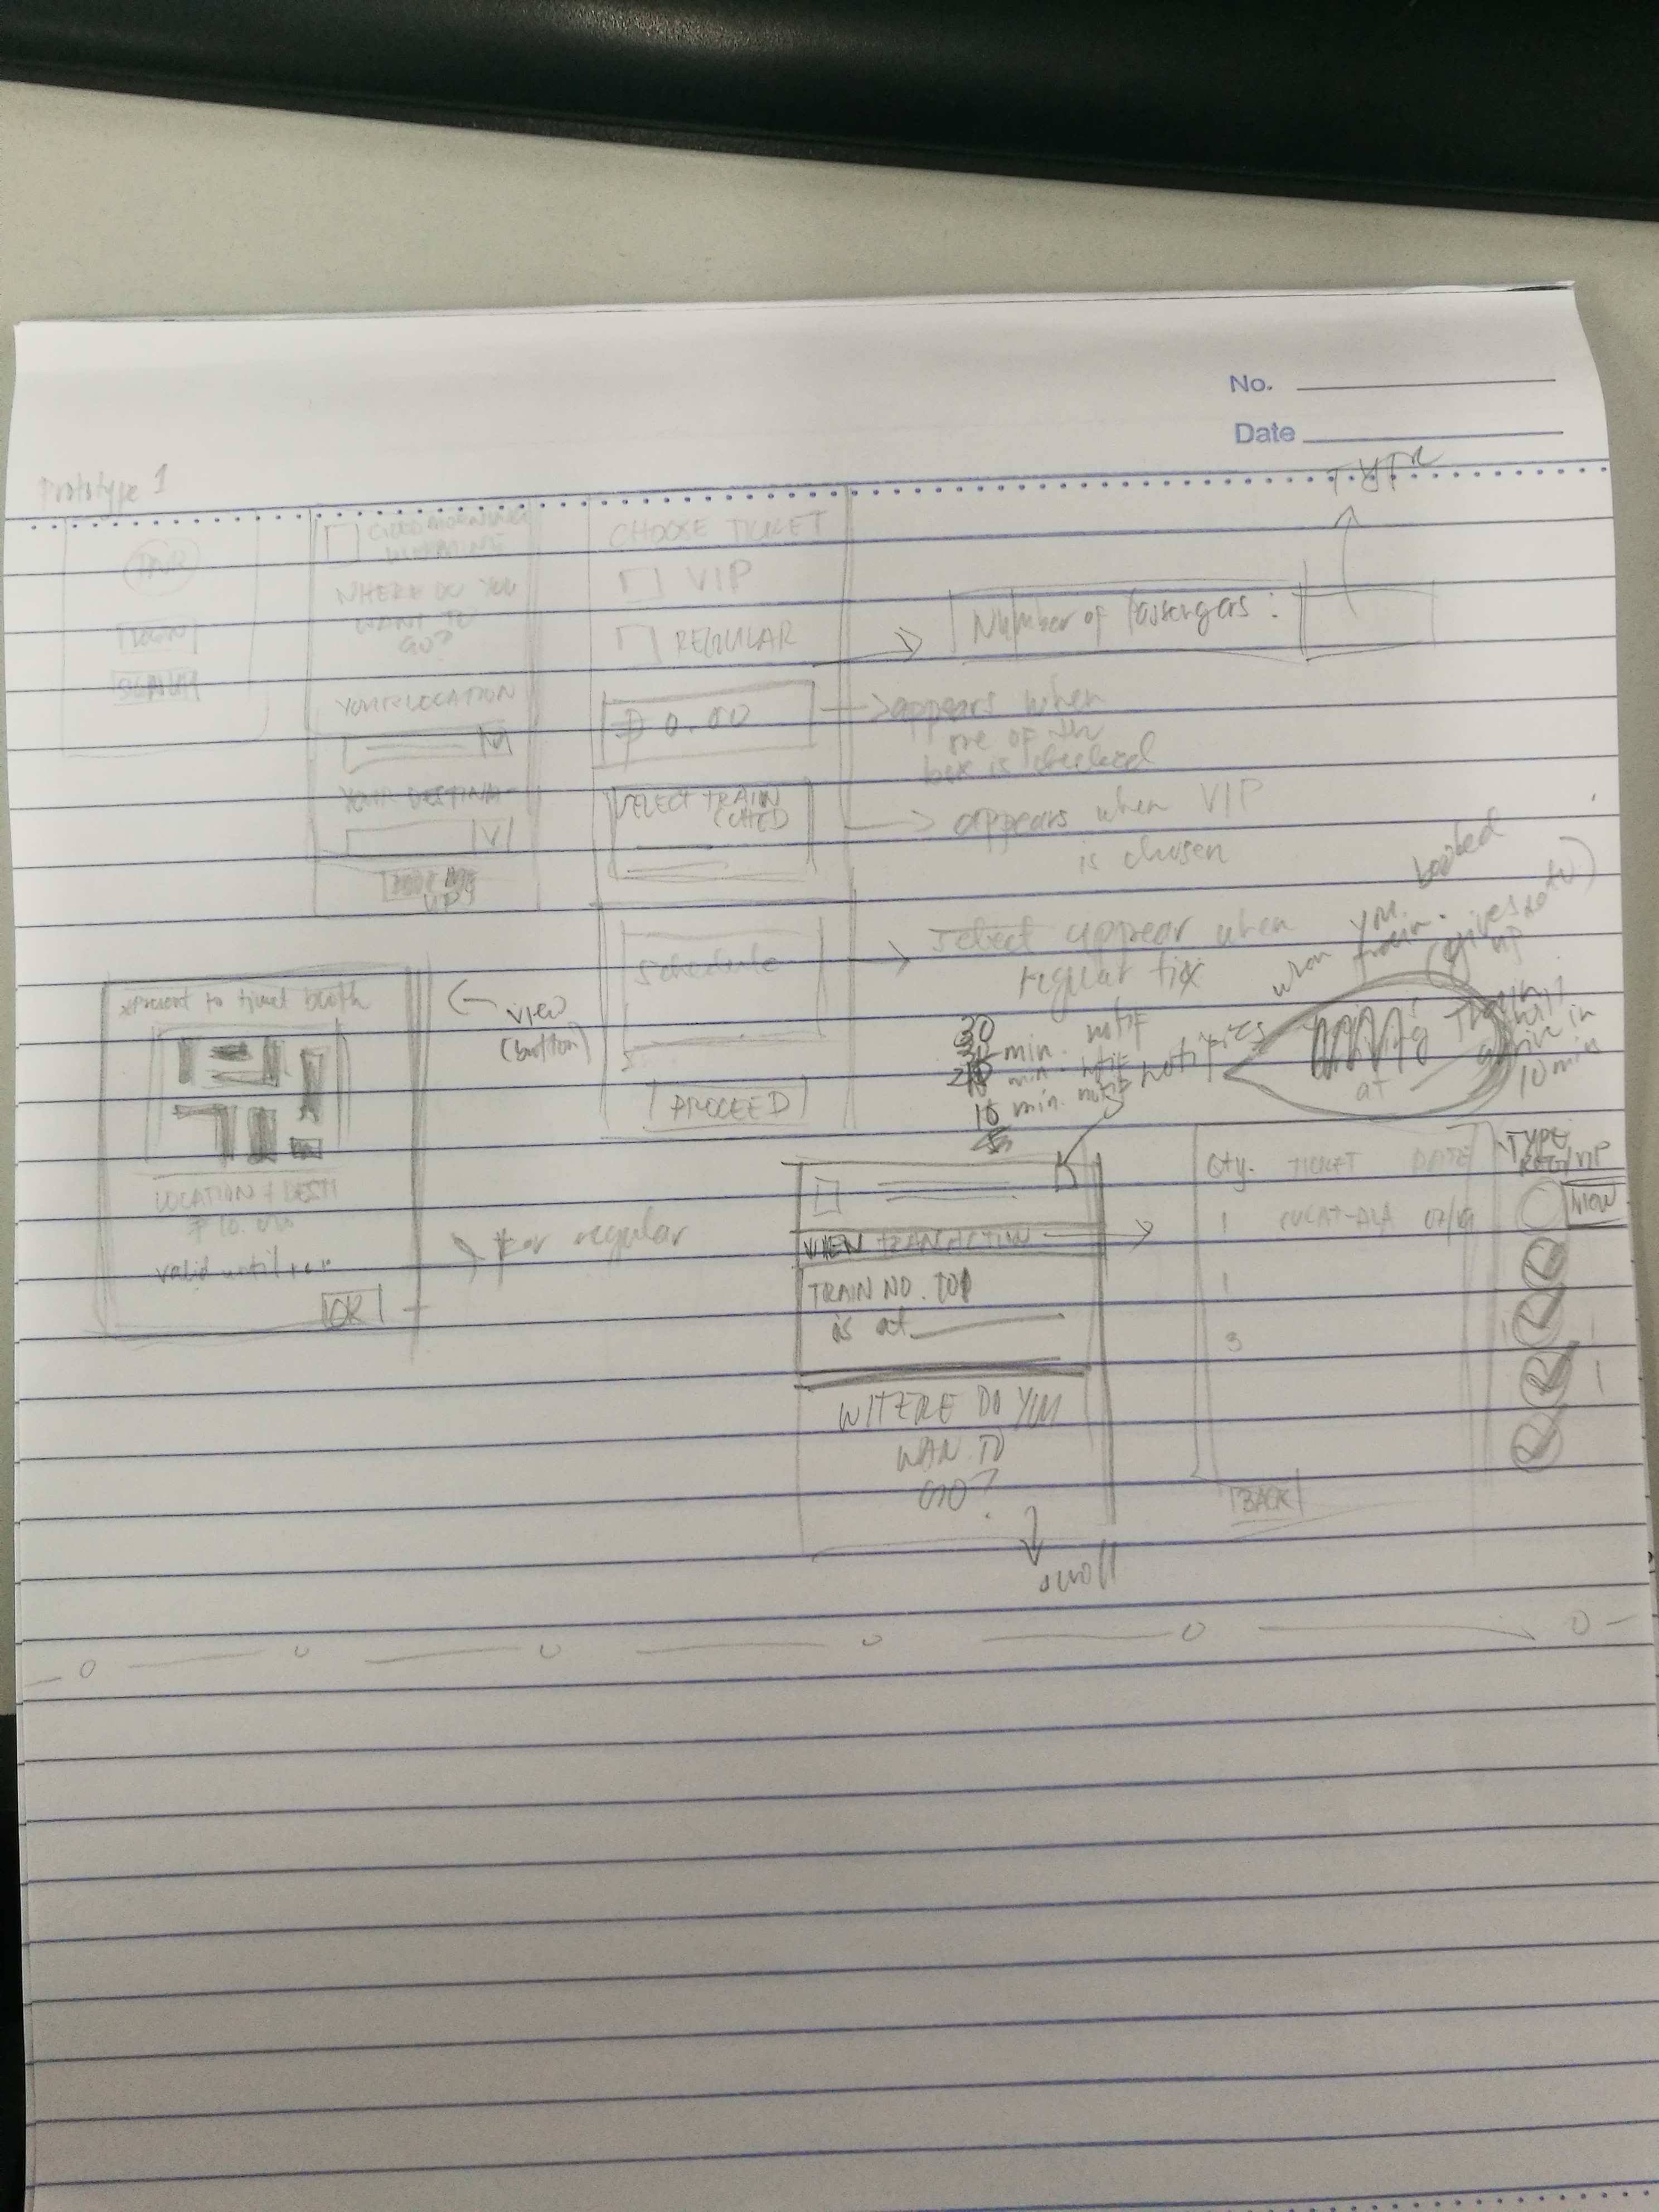 No.
Date
Prototype 1
WHERE DO YOU
WANT TO
GO?
YOUR LOCATION
YOUR DESTINA-
CHOOSE TICKET
VIP
REGULAR
₱ 0.00
SELECT TRAIN
SCHED
Schedule
PROCEED
Number of Passengers:
appears when
one of the
box is checked
appears when VIP
is chosen
Select appear when
regular tix
when you booked
train.
30
min. notif
min. notif
10 min. notif
notifies
Train will
arrive in
10 min
at
*Present to ticket booth
LOCATION & DESTI
₱10.00
valid until
OK
view
(button)
For regular
VIEW TRANSACTION
TRAIN NO. 101
is at
WHERE DO YOU
WAN TO
GO?
scroll
Qty. TICKET DATE TYPE
REG/VIP
1 07/19 VIEW
1
3
BACK